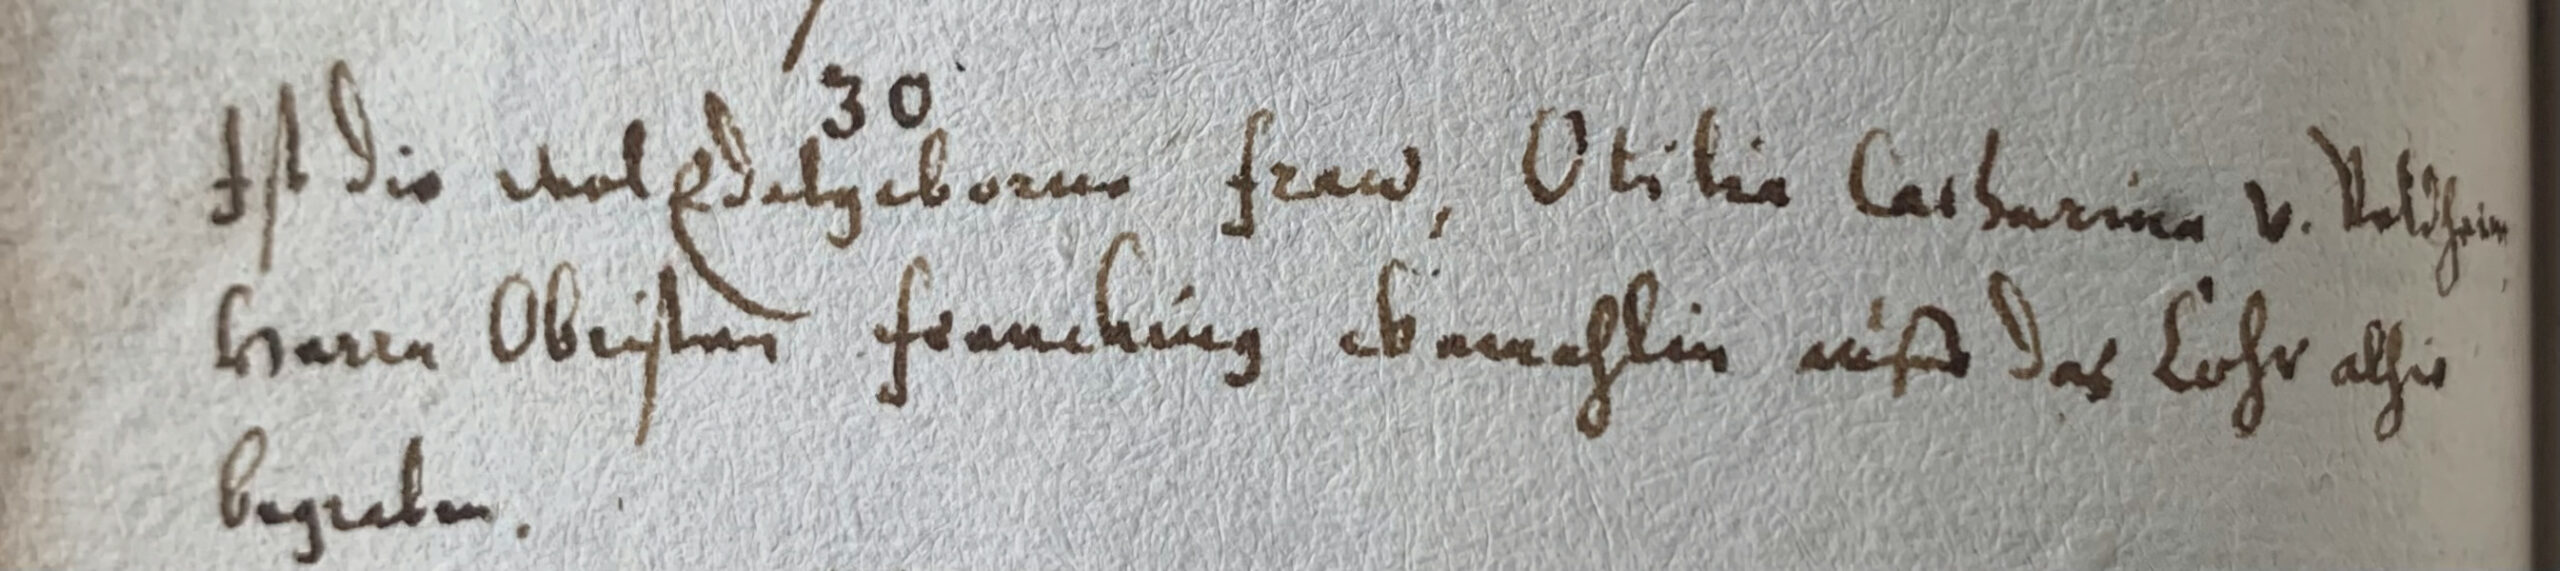 30
Ist die wol Edelgeborne fraw, Otilia Catharina v.
Herrn Obristen franching Gemahlin auß das Lohr alhie
begraben.